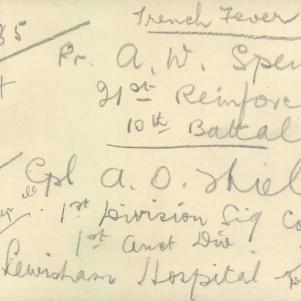 Trench Fever
35
Pr. A. W. Spen
21st Reinforc
10th Battal
Cpl A. O. Shiel
1st Division Sig Co
1st Aust Div
Lewisham Hospital